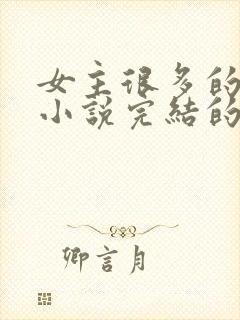 女主很多的
小说完结的
卿言月